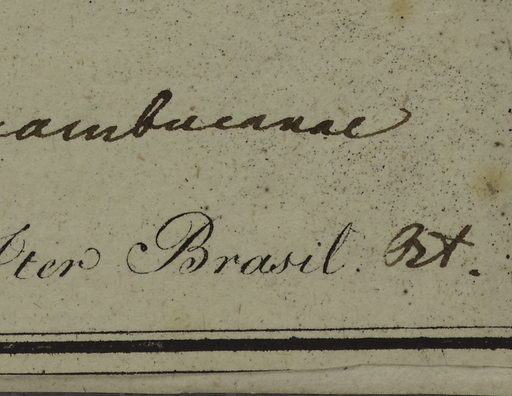 ambucanae
Iter Brasil.